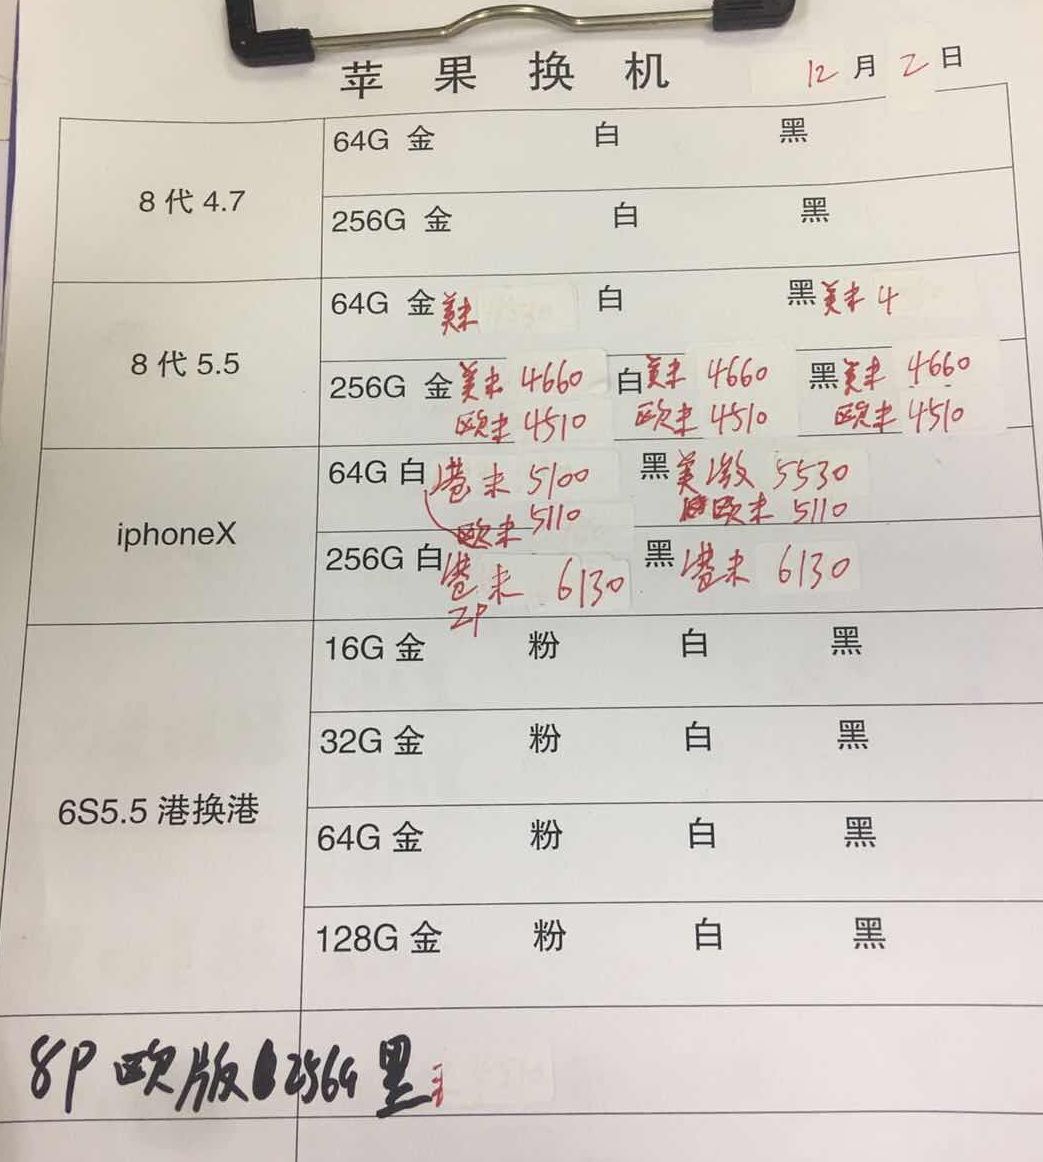 苹果换机 12月2日
8代4.7
64G 金 白 黑
256G 金 白 黑
8代5.5
64G 金 美未 白 黑 美未 4
256G 金 美未 4660 白 美未 4660 黑 美未 4660
欧未 4510 欧未 4510 欧未 4510
iphoneX
64G 白 港未 5100 黑 美激 5530
欧未 5110 欧未 5110
256G 白 港未 6130 黑 港未 6130
ZP
6S5.5 港换港
16G 金 粉 白 黑
32G 金 粉 白 黑
64G 金 粉 白 黑
128G 金 粉 白 黑
8P 欧版 256G 黑